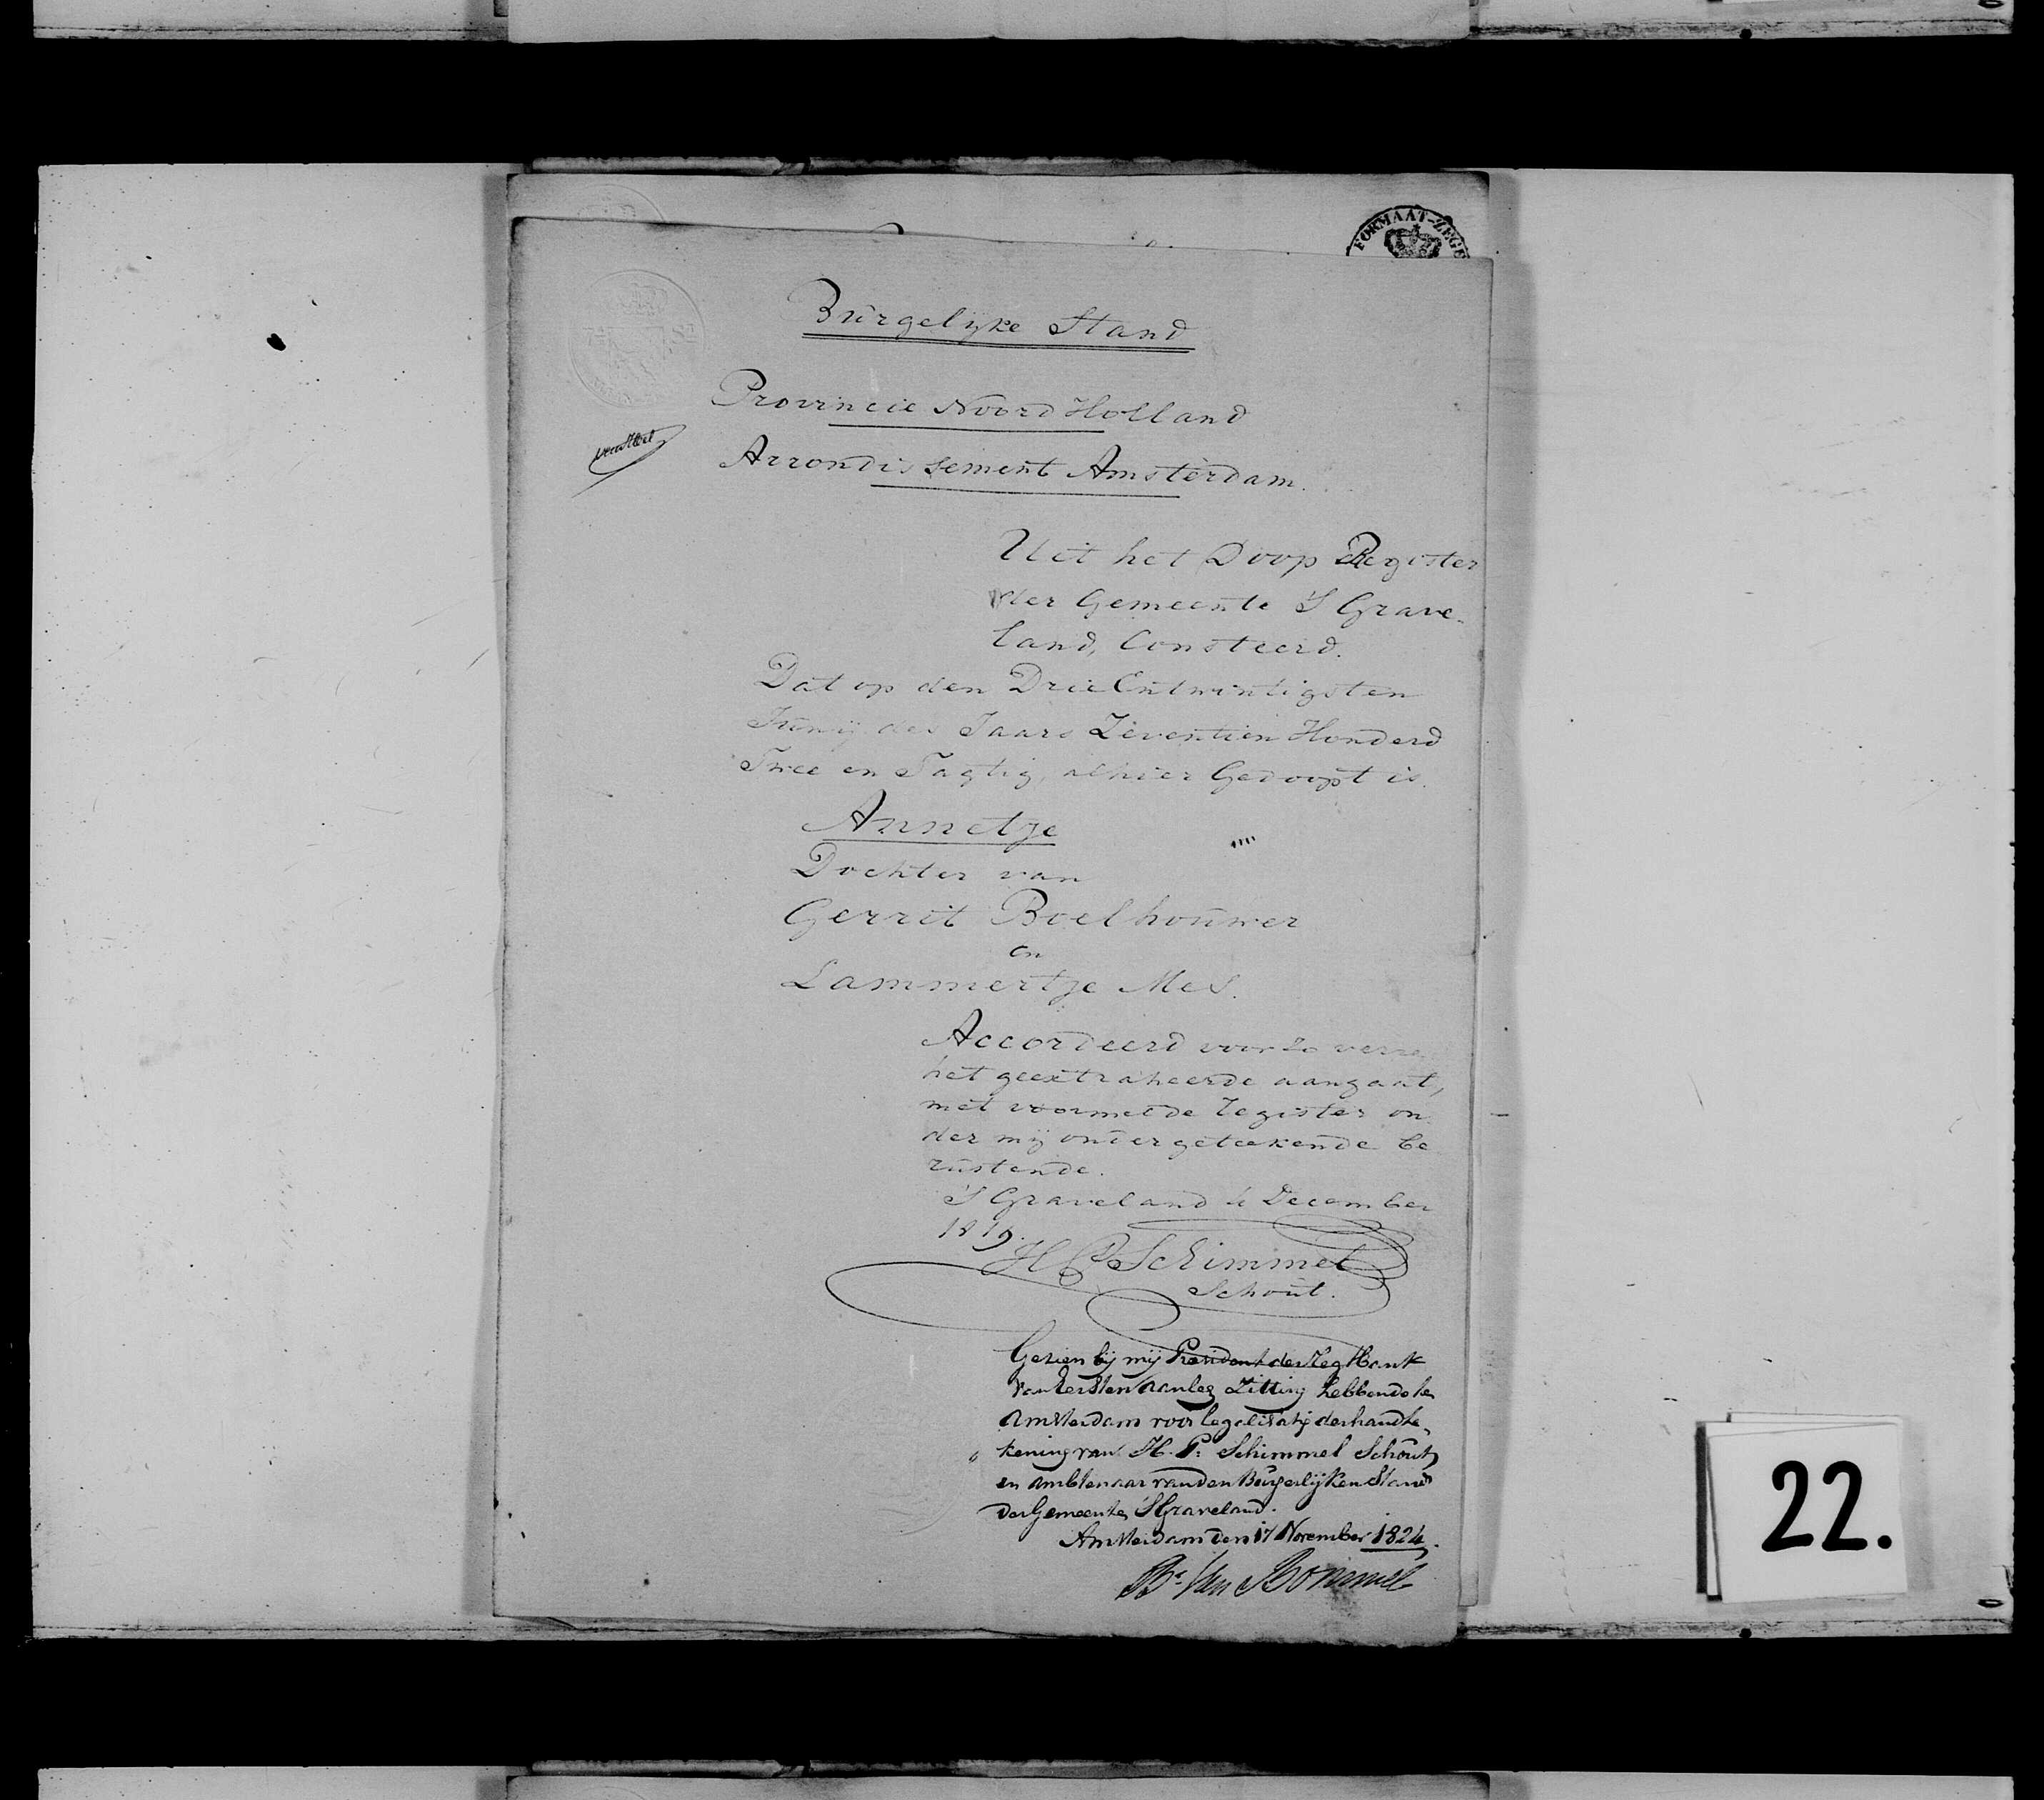 FORMAAT-ZEGE
Burgelyke Stand
Provincie Noord Holland
Arrondissement Amsterdam.
Uit het Doop Register
der Gemeente 'S Grave-
land, Consteerd.
Dat op den Drie Entwintigsten
Junij des Jaars Zeventien Honderd
Twee en Tagtig, alhier Gedoopt is.
Annetje
Dochter van
Gerrit Boelhouwer
en
Lammertje Mes.
Accordeerd voor zo verre
het geextraheerde aangaat,
met voormelde register on
der mij ondergeteekende be
rustende.
'S Graveland 4 December
1819.
H P Schimmel
Schout.
Gezien bij mij President der Regtbank
van Eersten aanleg Zitting hebbende te
Amsterdam voor legalisatij der handte„
„ kening van H. P. Schimmel Schout
en Ambtenaar van den Burgerlijken Stand
der Gemeente 'S Graveland.
Amsterdam den 17 November 1824.
Van Bommel
22.